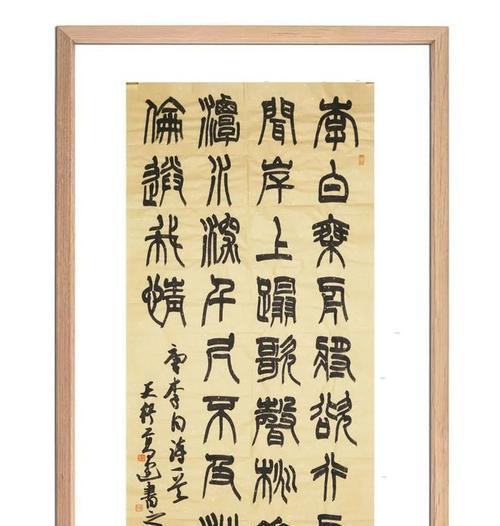 李白乘舟將欲行
聞岸上踏歌聲桃花
潭水深千尺不及汪
倫送我情
唐李白詩一首
書之